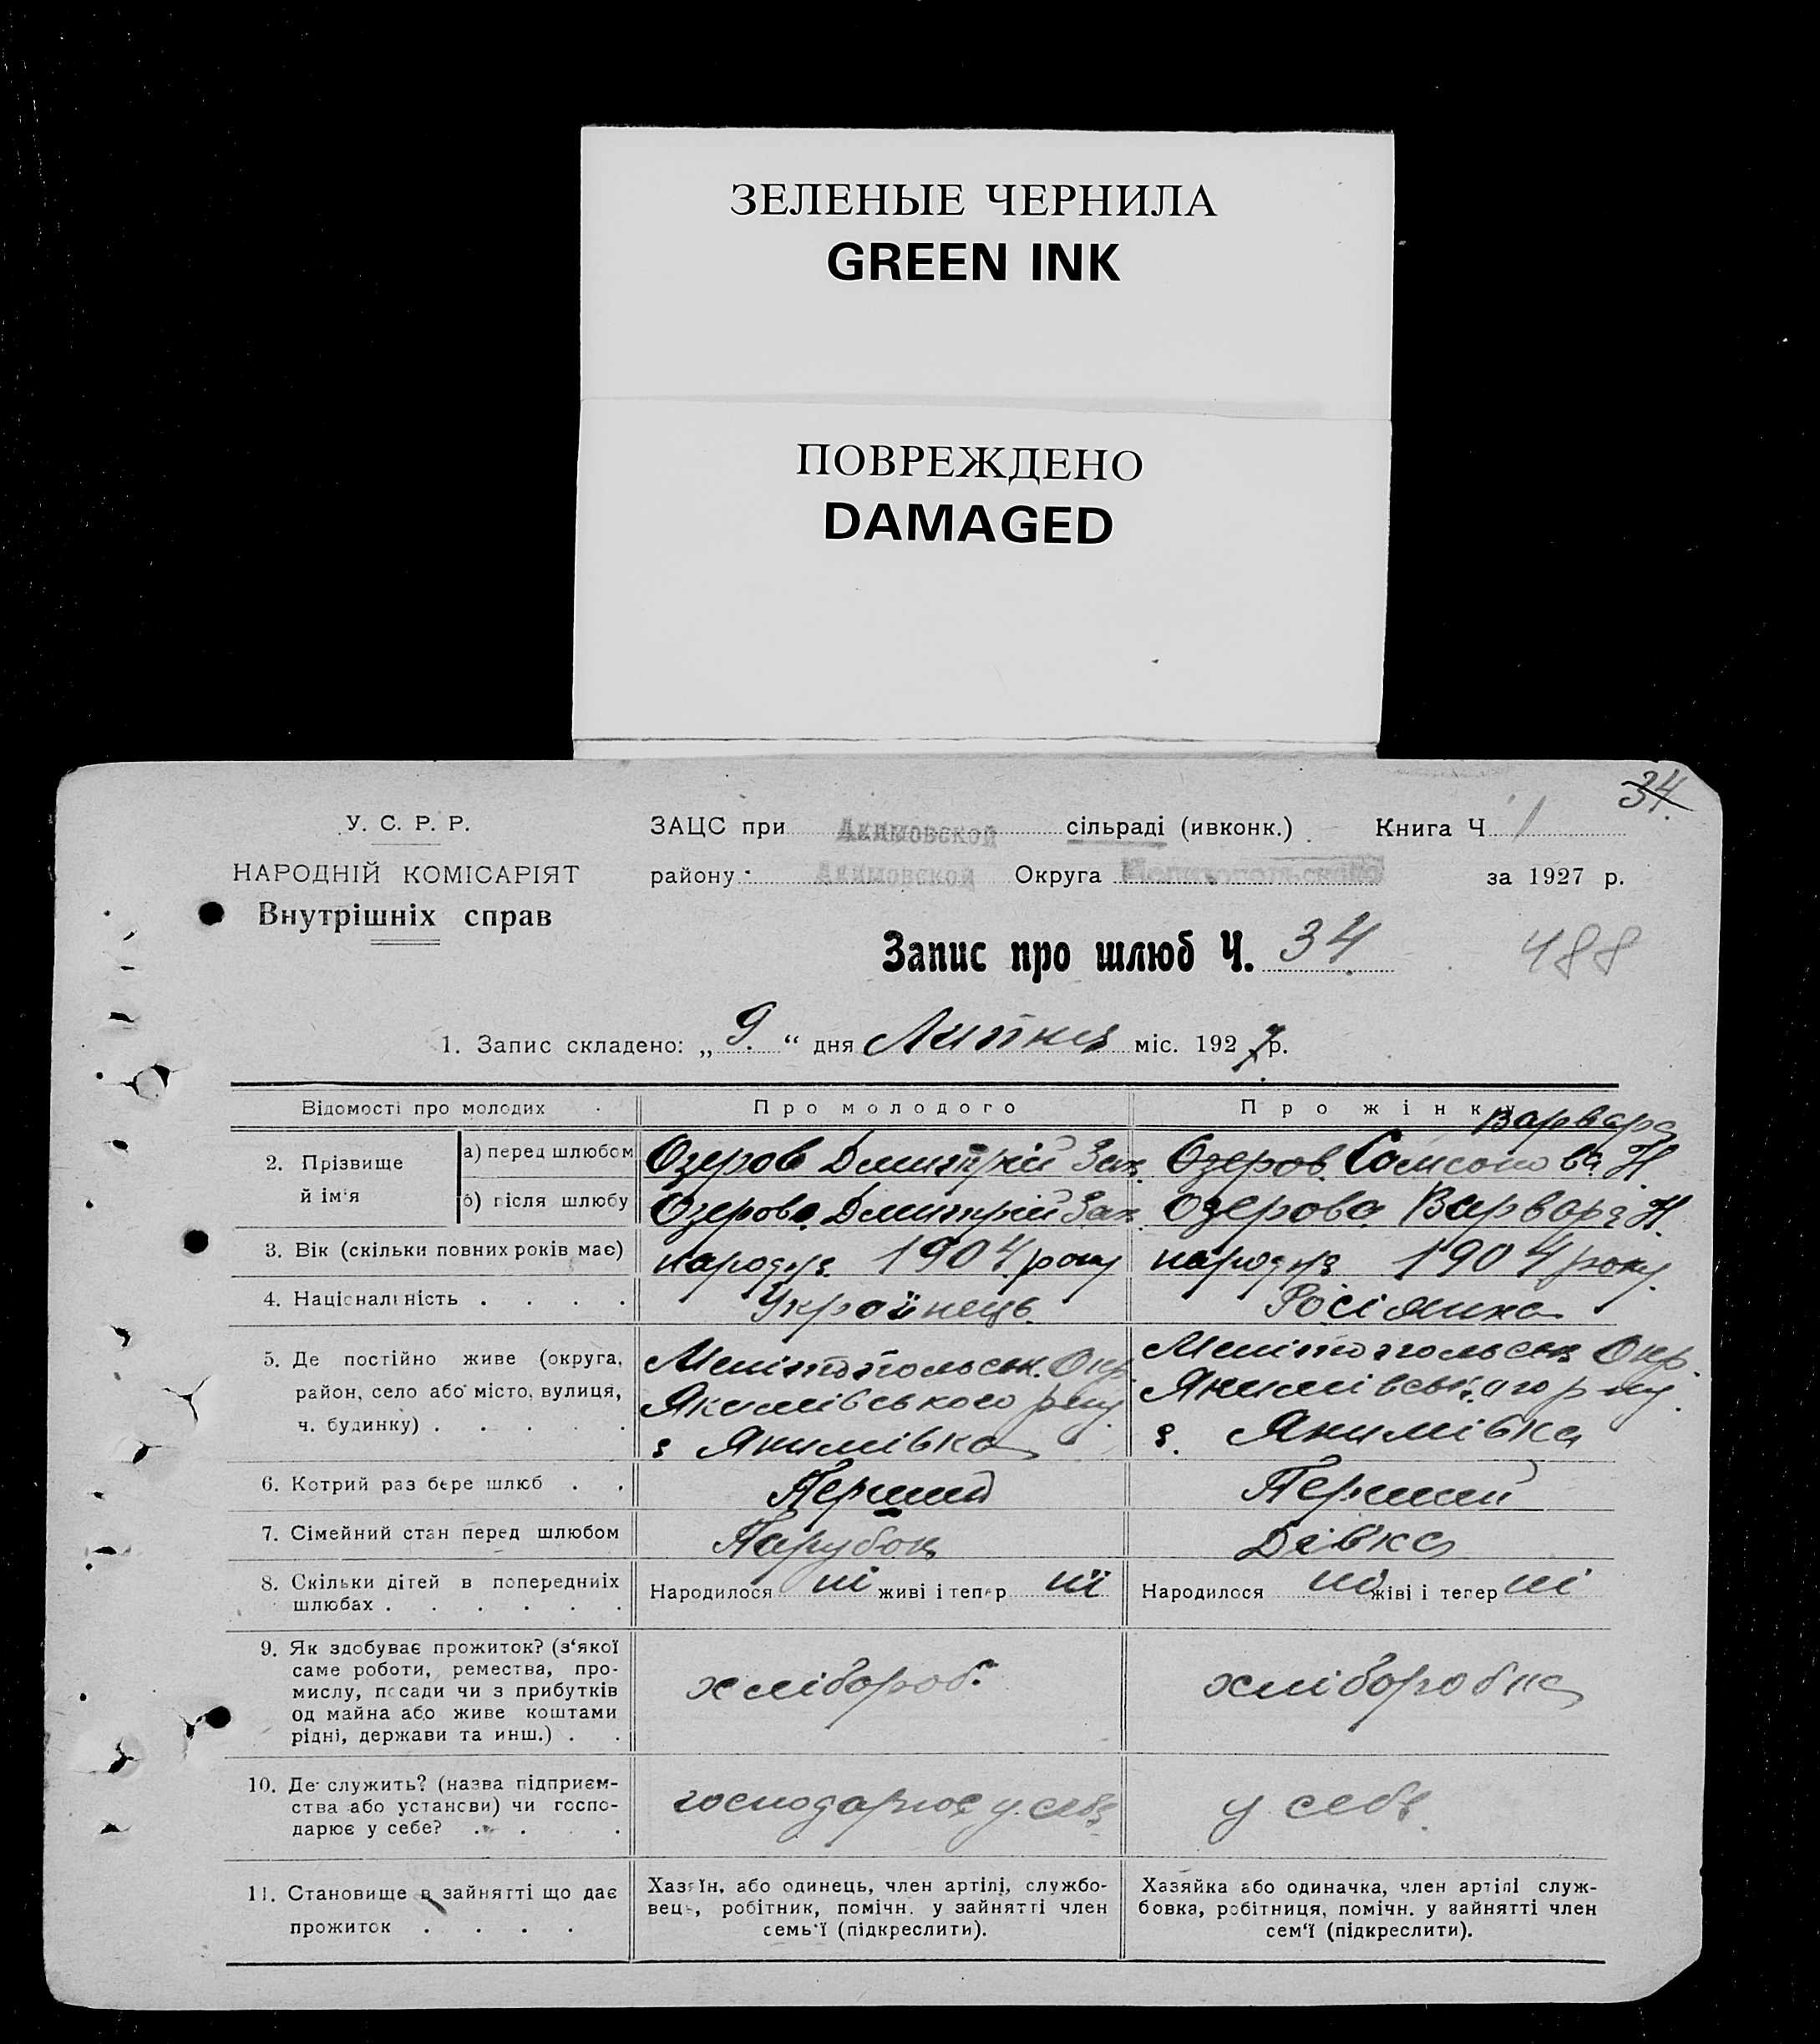 ЗЕЛЕНЫЕ ЧЕРНИЛА
GREEN INK
ПОВРЕЖДЕНО
DAMAGED
34.
У. С. Р. Р.
ЗАЦС при Акимовской сільраді (ивконк.) Книга Ч 1
НАРОДНІЙ КОМІСАРІЯТ
району Акимовской Округа за 1927 р.
Внутрішніх справ
Запис про шлюб Ч. 34
488
1. Запис складено: „9.“ дня Липня міс. 1927 р.
Відомості про молодих
Про молодого
Про жінку
2. Прізвище й ім'я
а) перед шлюбом
Озеров Дмитрій Зах.
Варвара
Озеров. Самсонова Н.
б) після шлюбу
Озеров Дмитрій Зах.
Озерова Варвара Н.
3. Вік (скільки повних років має)
народж. 1904 року
народж. 1904 року.
4. Національність . . . .
Українець.
Росіянка
5. Де постійно живе (округа,
район, село або місто, вулиця,
ч. будинку) . . . . .
Мелітопольськ. Окр.
Якимівського р-ну
с Якимівка
Мелітопольськ Окр.
Якимівського р-ну.
с. Якимівка
6. Котрий раз бере шлюб . .
Перший
Перший
7. Сімейний стан перед шлюбом
Парубок
Дівка
8. Скільки дітей в попередниіх
шлюбах . . . . . .
Народилося ні живі і тепер ні
Народилося ні живі і тепер ні
9. Як здобуває прожиток? (з‘якої
саме роботи, ремества, про-
мислу, посади чи з прибутків
од майна або живе коштами
рідні, держави та инш.) . .
хлібороб.
хліборобка
10. Де служить? (назва підприєм-
ства або установи) чи госпо-
дарює у себе? . . . .
господарює у себе
у себе.
11. Становище в зайнятті що дає
прожиток . . . .
Хазяїн, або одинець, член артілі, службо-
вець, робітник, помічн. у зайнятті член
семь‘ї (підкреслити).
Хазяйка або одиначка, член артілі служ-
бовка, робітниця, помічн. у зайнятті член
сем‘ї (підкреслити).